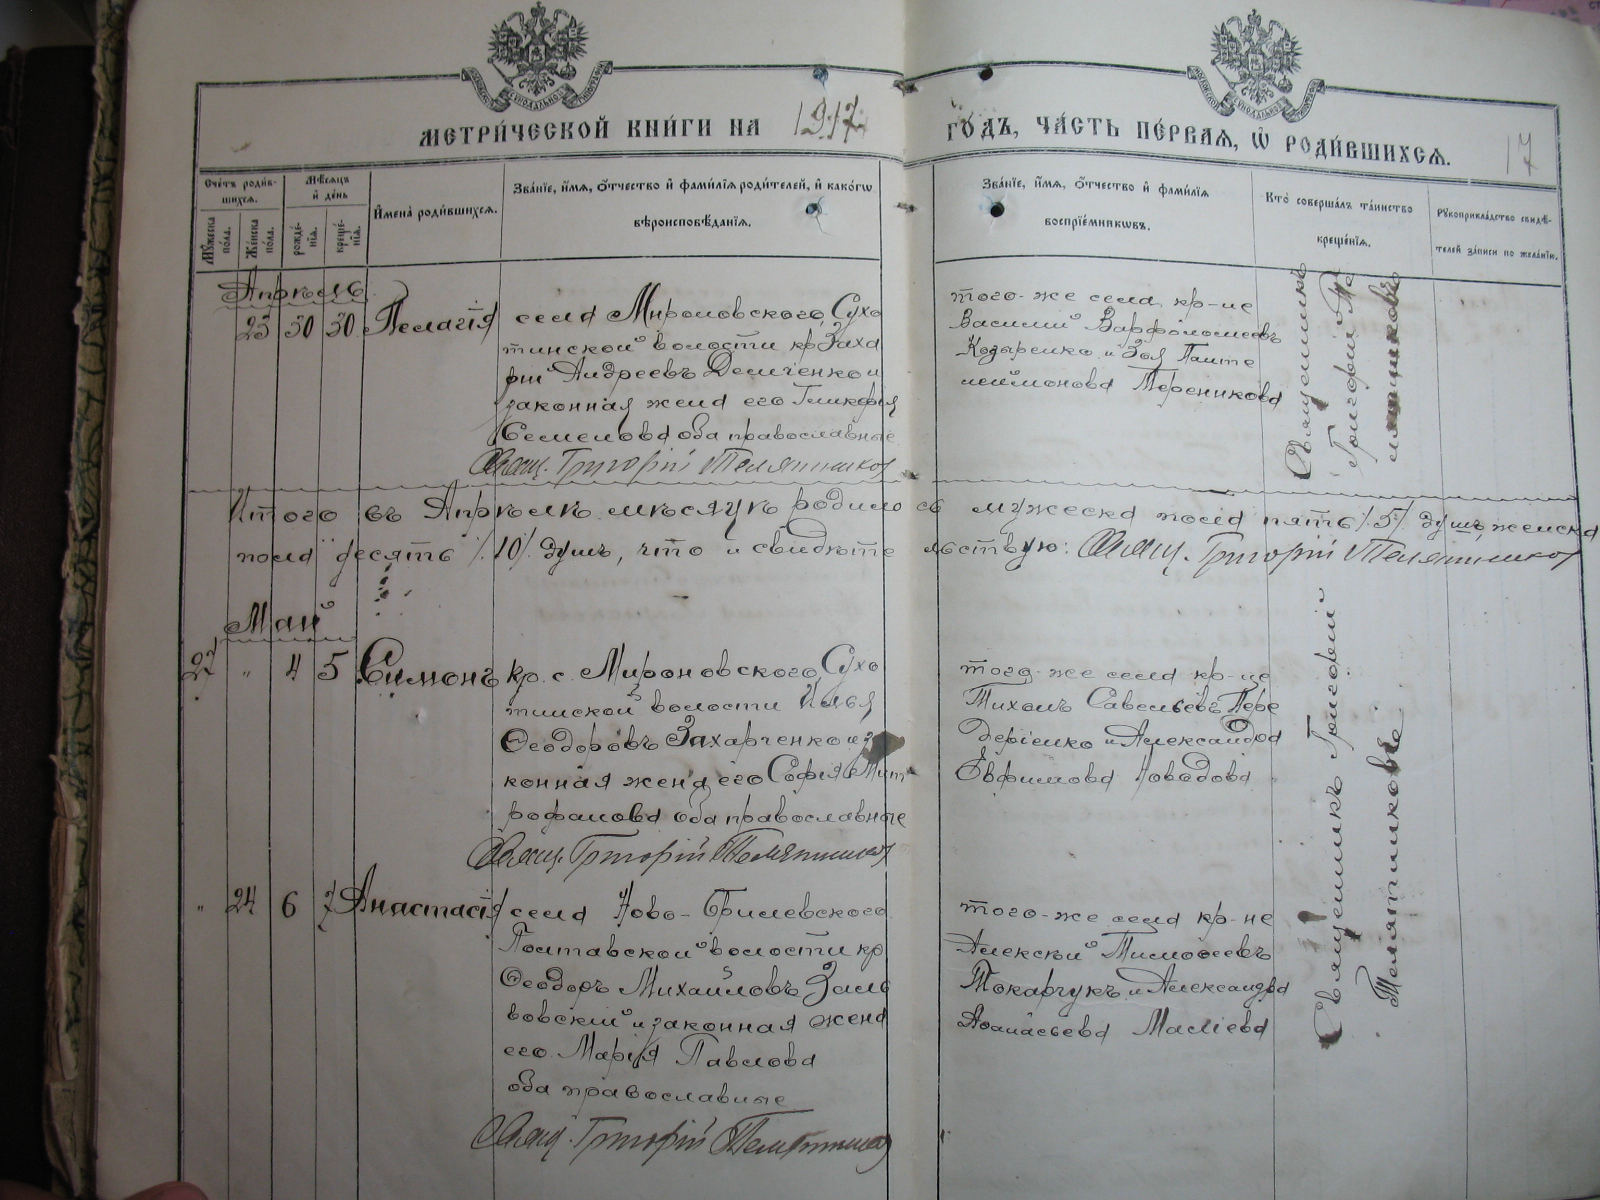 МЕТРИ́ЧЕСКОЙ КНИ́ГИ НА 1917 ГО́ДЪ, ЧА́СТЬ ПЕ́РВАЯ, Ѡ РОДИ́ВШИХСЯ.
17
Сче́тъ роди́вшихся.
Мѣ́сяцъ и де́нь
Му́жеска по́ла.
Же́нска по́ла.
рожде́нїя.
креще́нїя.
Имена̀ роди́вшихся.
Зва́нїе, и́мя, о́тчество и фами́лїя роди́телей, и како́гѡ
вѣроисповѣ́данїя.
Зва́нїе, и́мя, о́тчество и фами́лїя
воспрїе́мникѡвъ.
Кто̀ соверша́лъ та́инство
креще́нїя.
Рукоприкла́дство свидѣ́-
телей за́писи по жела́нїю.
Апрѣль
23 30 30 Пелагія
села Мироновского, Сухо
тинской волости кр Заха
рій Андреевъ Демченко и
законная жена его Гликерія
Семенова оба православные
Свящ. Григорій Телятников
того-же села кр-не
Василий Варфоломеевъ
Козыренко и Зоя Панте
леимонова
Священникъ
Григорій Те
лятниковъ
Итого въ Апрѣлѣ мѣсяцѣ родилось мужеска пола пять /5/ душъ, женска
пола десять /10/ душъ, что и свидѣтельствую: Свящ. Григорій Телятников
Май
22 " 4 5 Симонъ
кр. с. Мироновского, Сухо
тинской волости Илья
Ѳеодоровъ Захарченко и за
конная жена его Софія Мит
рофанова оба православные
Свящ. Григорій Телятников
того-же села кр-не
Тихонъ Савельевъ Пере
деріенко и Александра
Евфимова
Священникъ Григорій
Телятниковъ
" 24 6 7 Анастасія
села Ново-Брилевского
Полтавской волости кр
Ѳеодоръ Михайловъ Зале
вовский и законная жена
его Марія Павлова
оба православные
Свящ. Григорій Телятников
того-же села кр-не
Алексѣй Тимоѳеевъ
Токарчукъ и Александра
Аѳанасьева Масліева